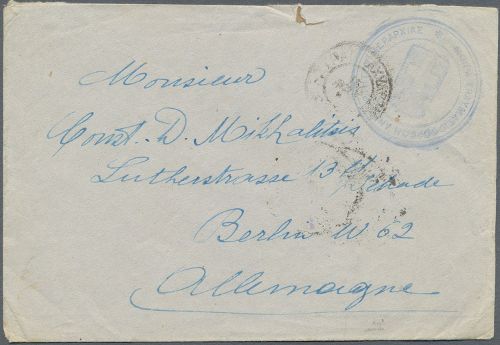 Monsieur
Const. D. Mikhalitsis
Lutherstrasse 13
Berlin W 62
Allemagne